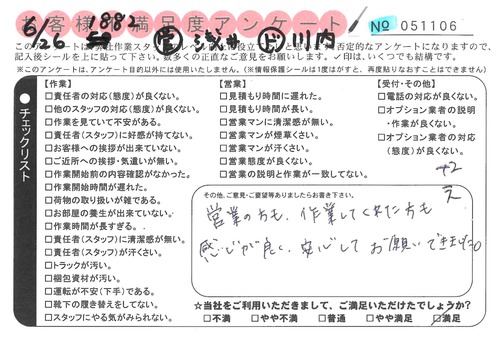 お客様満足度アンケート
№ 051106
6/26 1882 営 浅井 ド 川内
このアンケートは、当社作業スタッフのレベル向上に役立てたいと思います。否定的なアンケートになりますので、
記入後シールを上に貼って下さい。数多くの正直なご意見をお願いします。✓印は、いくつでも結構です。
※このアンケートは、アンケート目的以外には使用いたしません。(※情報保護シールは1度はがすと、再度貼りなおすことはできません)
●チェックリスト
【作業】
□責任者の対応(態度)が良くない。
□他のスタッフの対応(態度)が良くない。
□作業を見ていて不安がある。
□責任者(スタッフ)に好感が持てない。
□お客様への挨拶が出来ていない。
□ご近所への挨拶・気遣いが無い。
□作業開始前の内容確認がなかった。
□作業開始時間が遅れた。
□荷物の取り扱いが雑である。
□お部屋の養生が出来ていない。
□作業時間が長すぎる。
□責任者(スタッフ)に清潔感が無い。
□責任者(スタッフ)が汗くさい。
□トラックが汚い。
□梱包資材が汚い。
□運転が不安(下手)である。
□靴下の履き替えをしてない。
□スタッフにやる気がみられない。
【営業】
□見積もり時間に遅れた。
□見積もり時間が長い。
□営業マンに清潔感が無い。
□営業マンが煙草くさい。
□営業マンが汗くさい。
□営業態度が良くない。
□営業の説明と作業が一致してない。
【受付・その他】
□電話の対応が良くない。
□オプション業者の説明
・作業が良くない。
□オプション業者の対応
(態度)が良くない。
+2
え
その他、ご意見・ご要望等ありましたらお書き下さい。
営業の方も、作業してくれた方も
感じが良く、安心してお願いできました。
☆当社をご利用いただきまして、ご満足いただけたでしょうか?
□不満 □やや不満 □普通 □やや満足 □満足